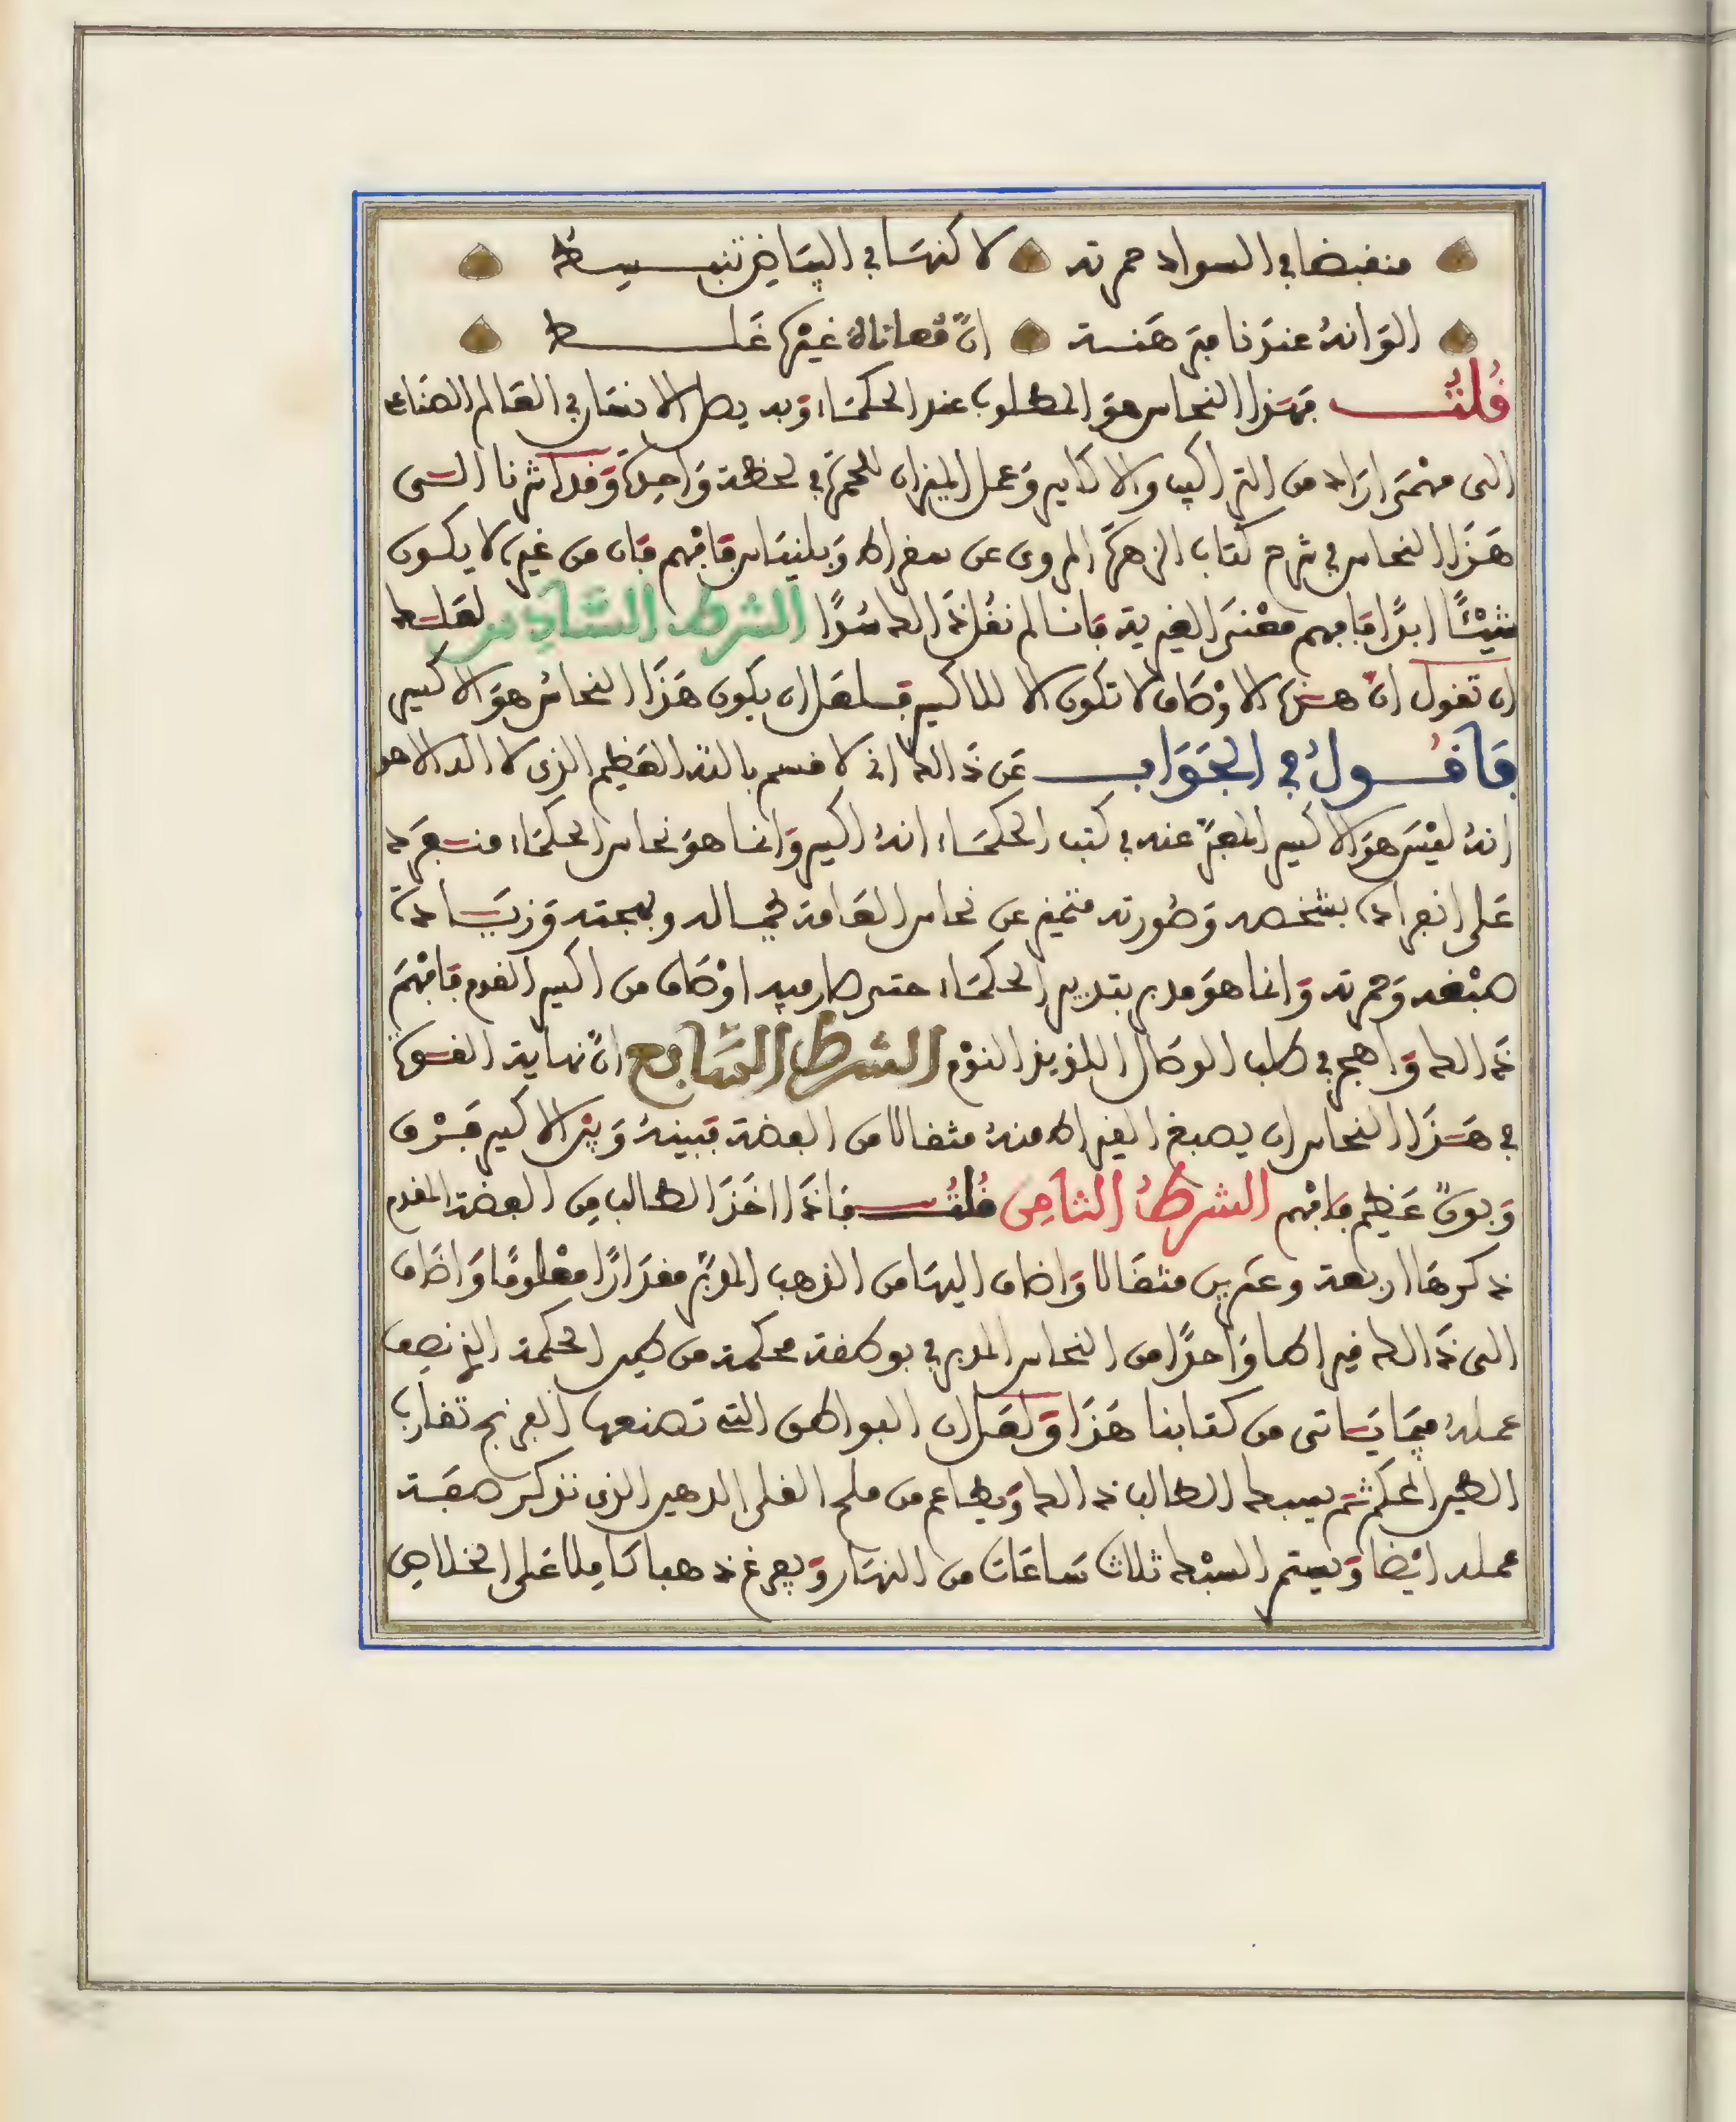 منقبضا في السواد حمرته لاكنها في البياض تنبسط
الوانه عندنا مبرهنة ان معاناة غيرها غلط
قلت فهذا النحاس هو المطلوب عند الحكماء وبه يصل الانسان في العالم الصناعي
الى مهمى اراد من التراكيب والاكاسير وعمل الميزان للحمرة في لحظة واحدة وقد اشرنا الى
هذا النحاس في شرح كتاب الزهرة المروي عن سقراط وبلنياس فافهم فان من غيره لا يكون
شيئا ابدا فافهم معنى الغيرية فاننا لم نقل ذالك سدا الشرط السادس لعلك
ان تقول ان هذه الاوصاف لا تكون الا للاكسير فلعل ان يكون هذا النحاس هو الاكسير
فاقول في الجواب عن ذالك اني لاقسم بالله العظيم الذي لا اله الا هو
انه ليس هو الاكسير المعبر عنه في كتب الحكماء انه اكسير وانما هو نحاس الحكماء منفرد
على انفراده بشخصه وصورته متميز عن نحاس العامة بجماله وبهجته وزيادة
صبغه وحمرته وانما هو مدبر بتدبير الحكماء حتى صار فيه اوصاف من اكسير القوم فافهم
ذالك واهجر في طلب الوصال اللذيذ النوم الشرط السابع ان نهاية القوة
في هذا النحاس ان يصبغ القيراط منه مثقالا من الفضة فبينه وبين الاكسير فرق
وبون عظيم فافهم الشرط الثامن قلت فاذا اخذ الطالب من الفضة المقدم
ذكرها اربعة وعشرين مثقالا واضاف اليها من الذهب المدبر مقدارا معلوما واضاف
الى ذالك قيراطا واحدا من النحاس المدبر في بوطقة محكمة من طين الحكمة الذي نصف
عمله فيما ياتي من كتابنا هذا ولعل ان البواطق التي تصنعها الفرنج تقارب
الطين المحكم ثم يسبك الطالب ذالك ويطاعم من ملح القلي الدهين الذي نذكر صفة
عمله ايضا ويستم السبك ثلاث ساعات من النهار ويفرغ ذهبا كاملا على الخلاص